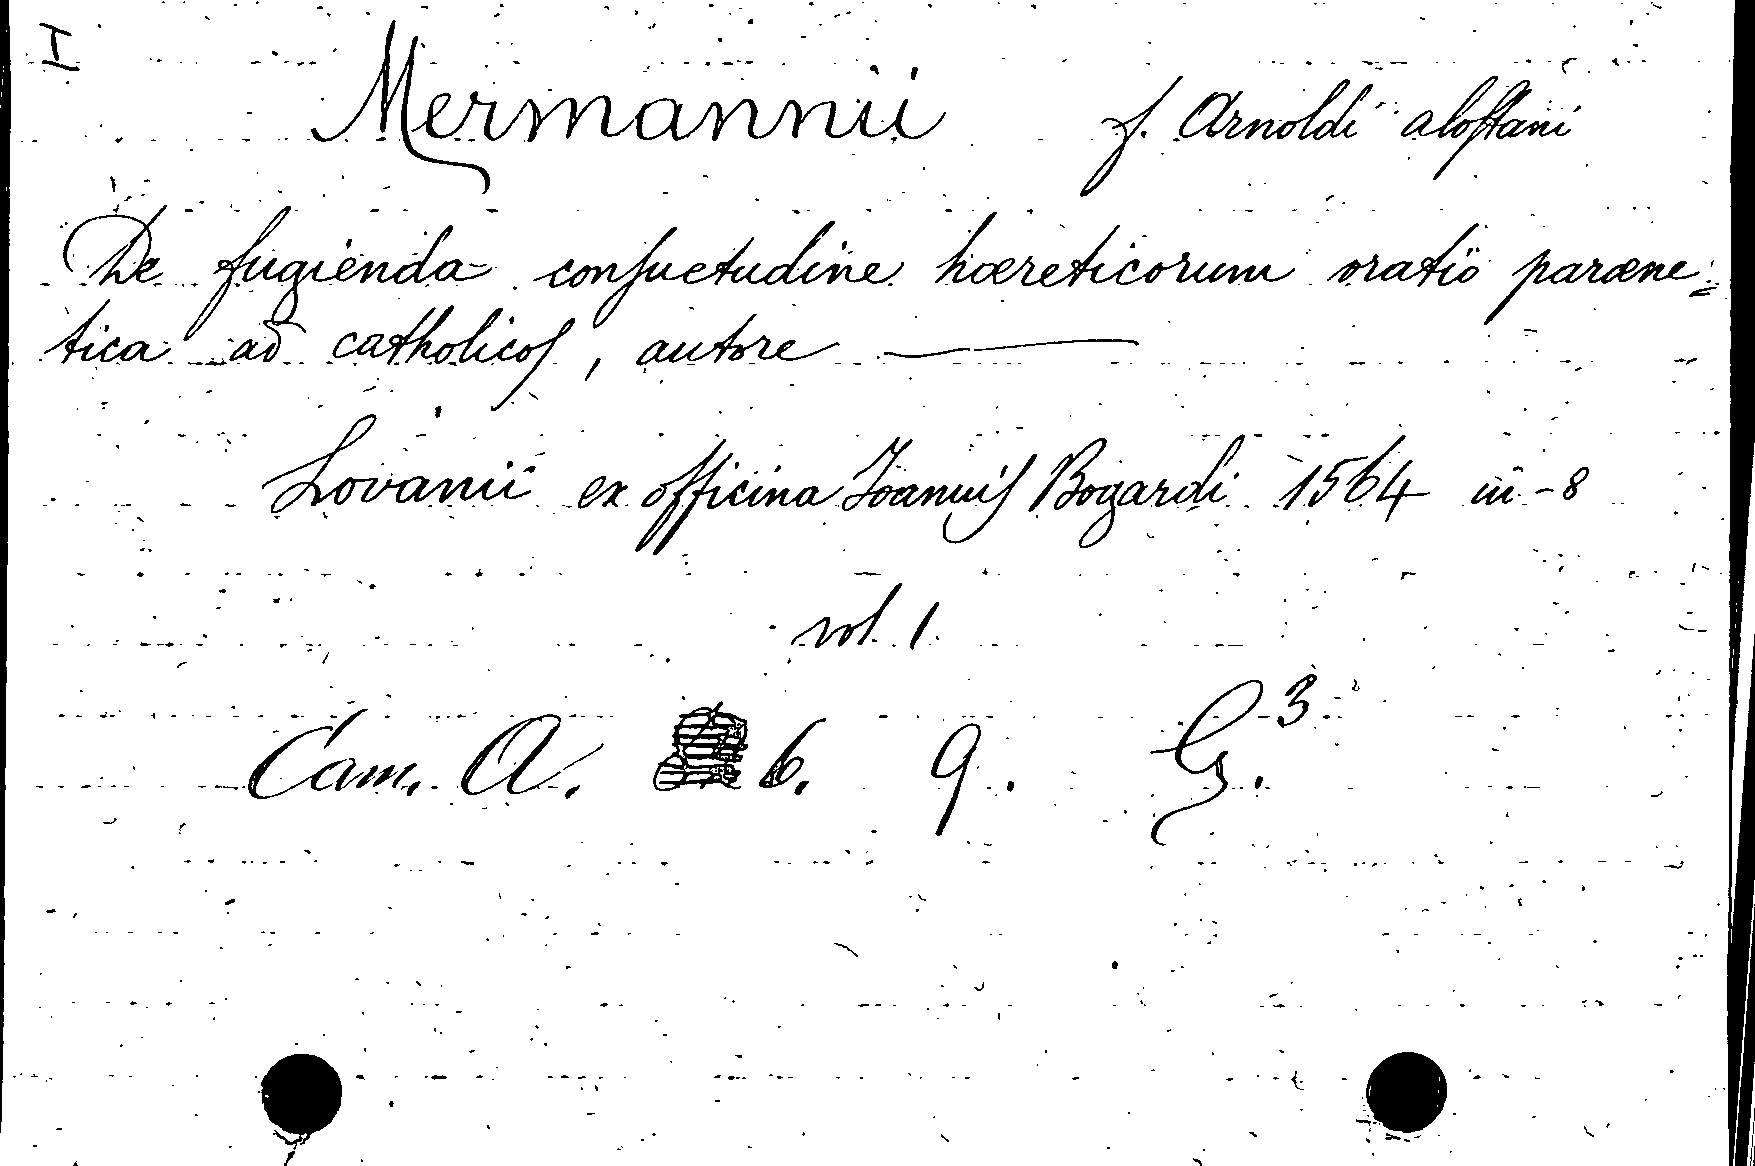 I
Mermannii f. Arnoldi alostani
De fugienda consuetudine hæreticorum oratio paræne=
tica ad catholicos, autore ———
Lovanii ex officina Joannis Bogardi 1564 in-8
vol. 1
Cam. A. 6. 9. G.³